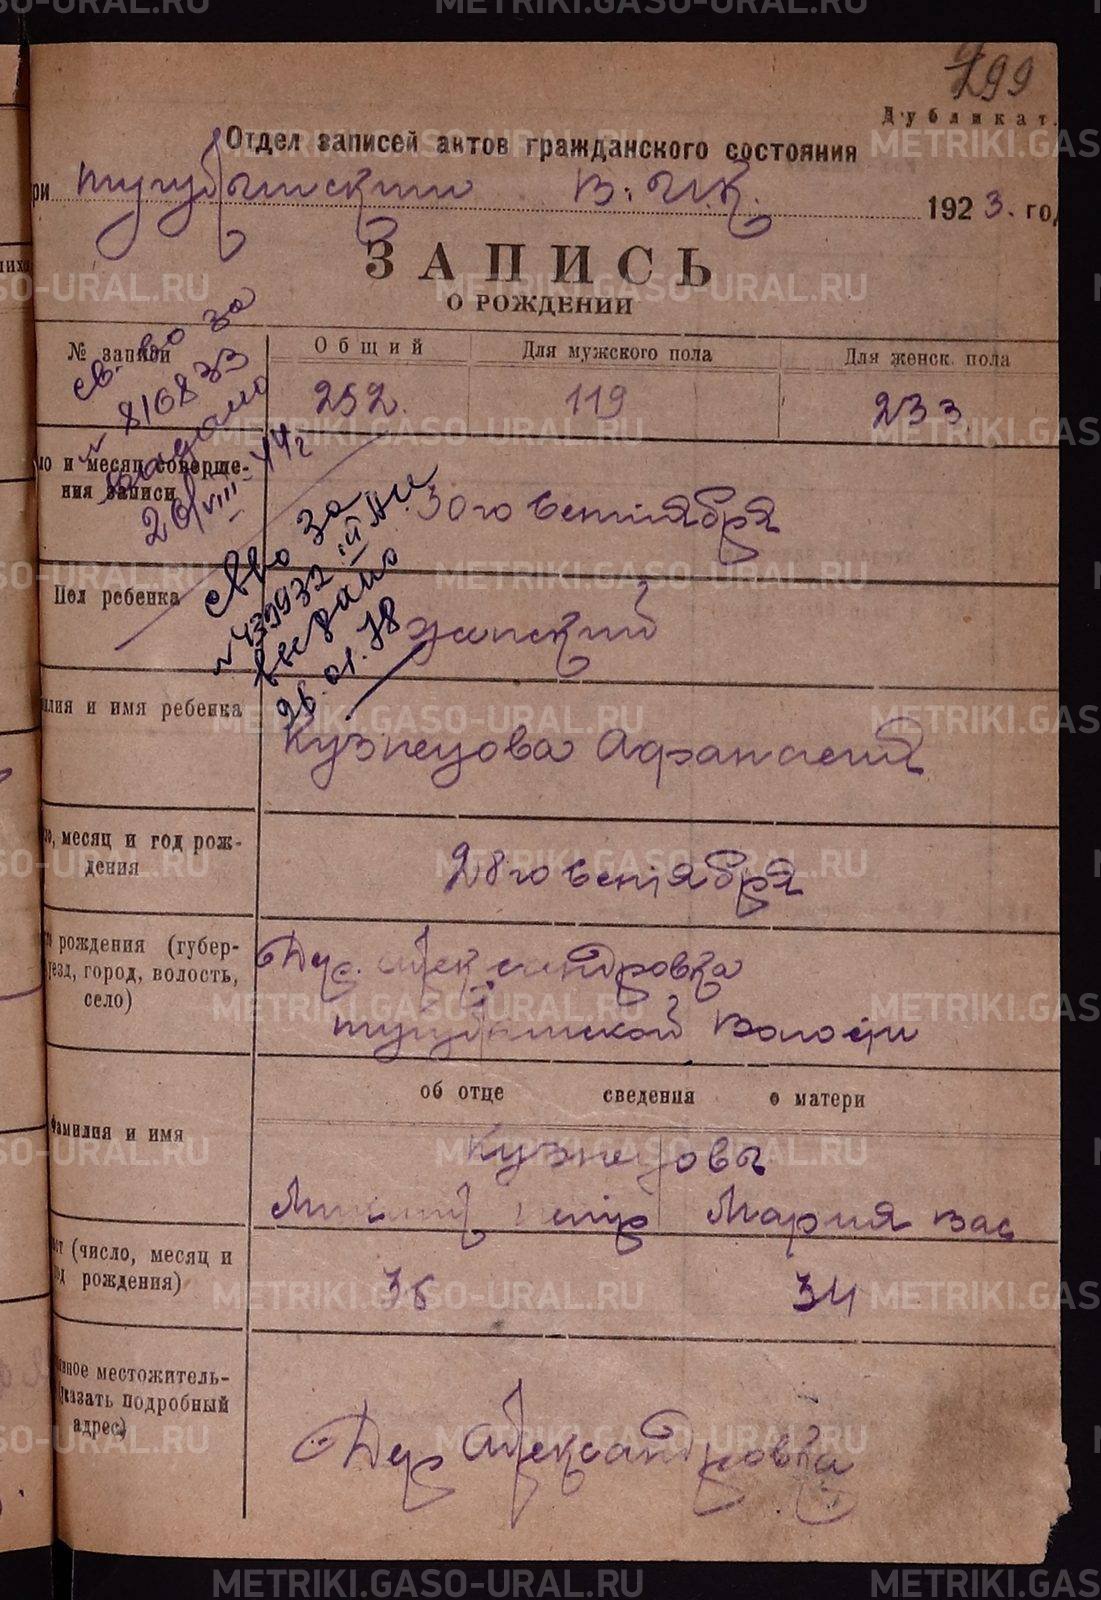 299
Дубликат.
Отдел записей актов гражданского состояния
ри Тугулымским В.И.К. 1923. год
ЗАПИСЬ
О РОЖДЕНИИ
№ записи
Общий
Для мужского пола
Для женск. пола
252.
119
233
св. во за
№ 816833
выдано
20/VIII-44г
ло и месяц соверше-
ния записи
30го Сентября
св-во за
№ 439932
выдано
26.01.78
Пол ребенка
женский
илия и имя ребенка
Кузнецова
ло, месяц и год рож-
дения
28го Сентября
то рождения (губер-
уезд, город, волость,
село)
Дер. Александровка
Тугулымской Волости
об отце сведения о матери
Фамилия и имя
Кузнецовы
Мария Вас
ст (число, месяц и
од рождения)
36
34
янное местожитель-
указать подробный
адрес)
Дер Александровка
METRIKI.GASO-URAL.RU